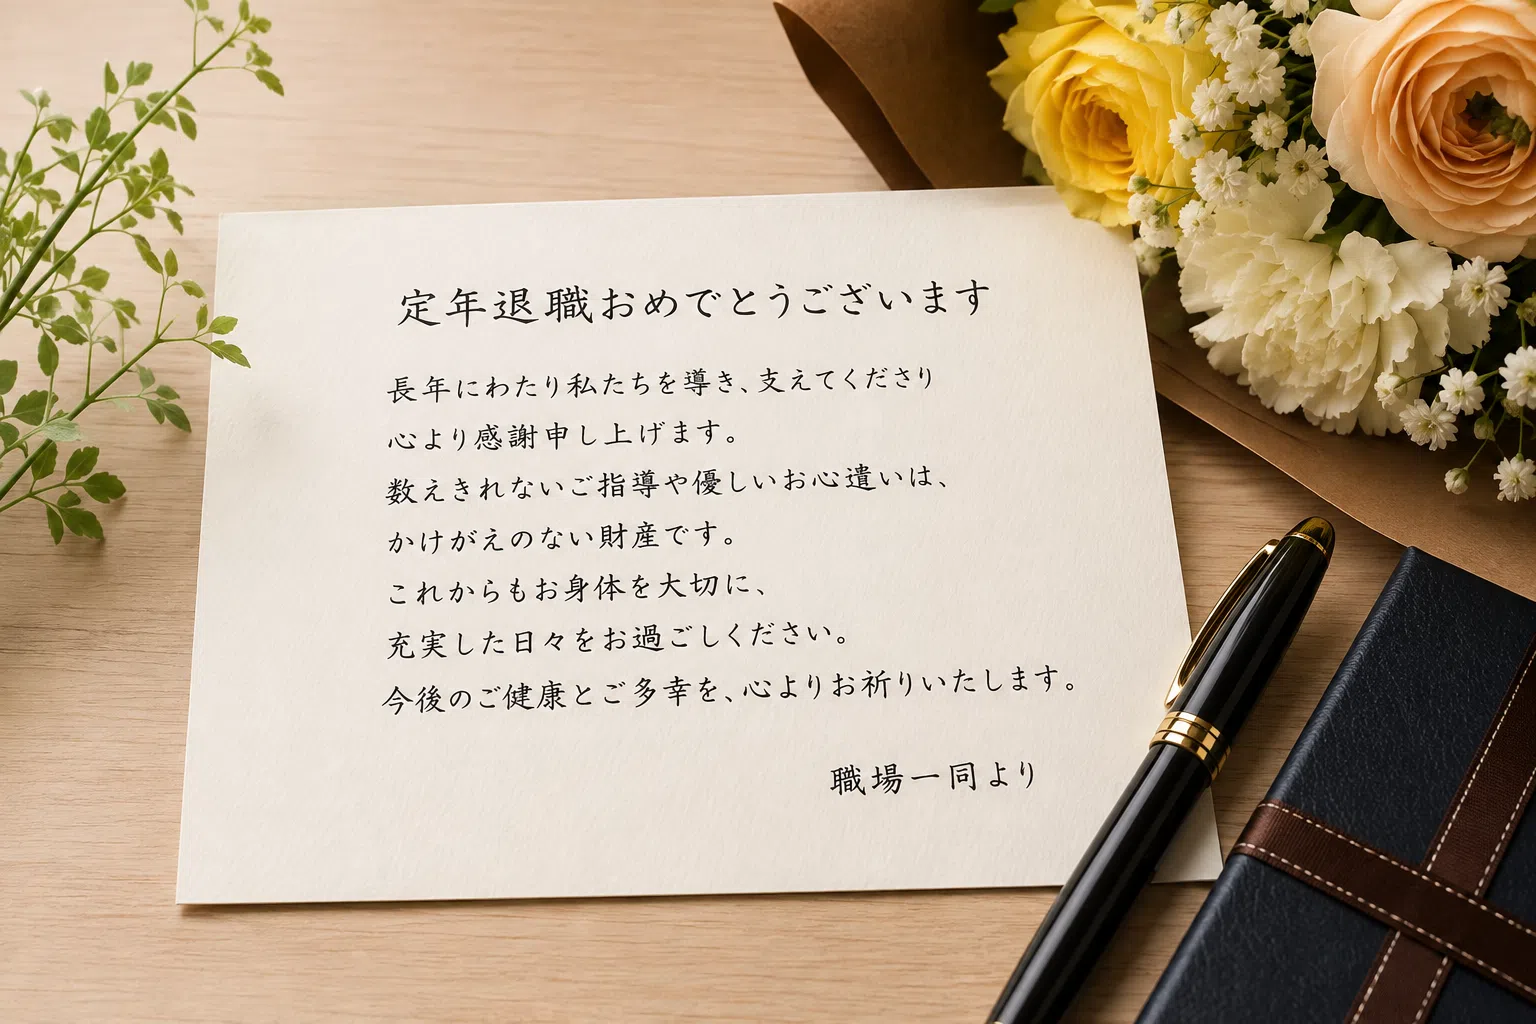 定年退職おめでとうございます
長年にわたり私たちを導き、支えてくださり
心より感謝申し上げます。
数えきれないご指導や優しいお心遣いは、
かけがえのない財産です。
これからもお身体を大切に、
充実した日々をお過ごしください。
今後のご健康とご多幸を、心よりお祈りいたします。
職場一同より